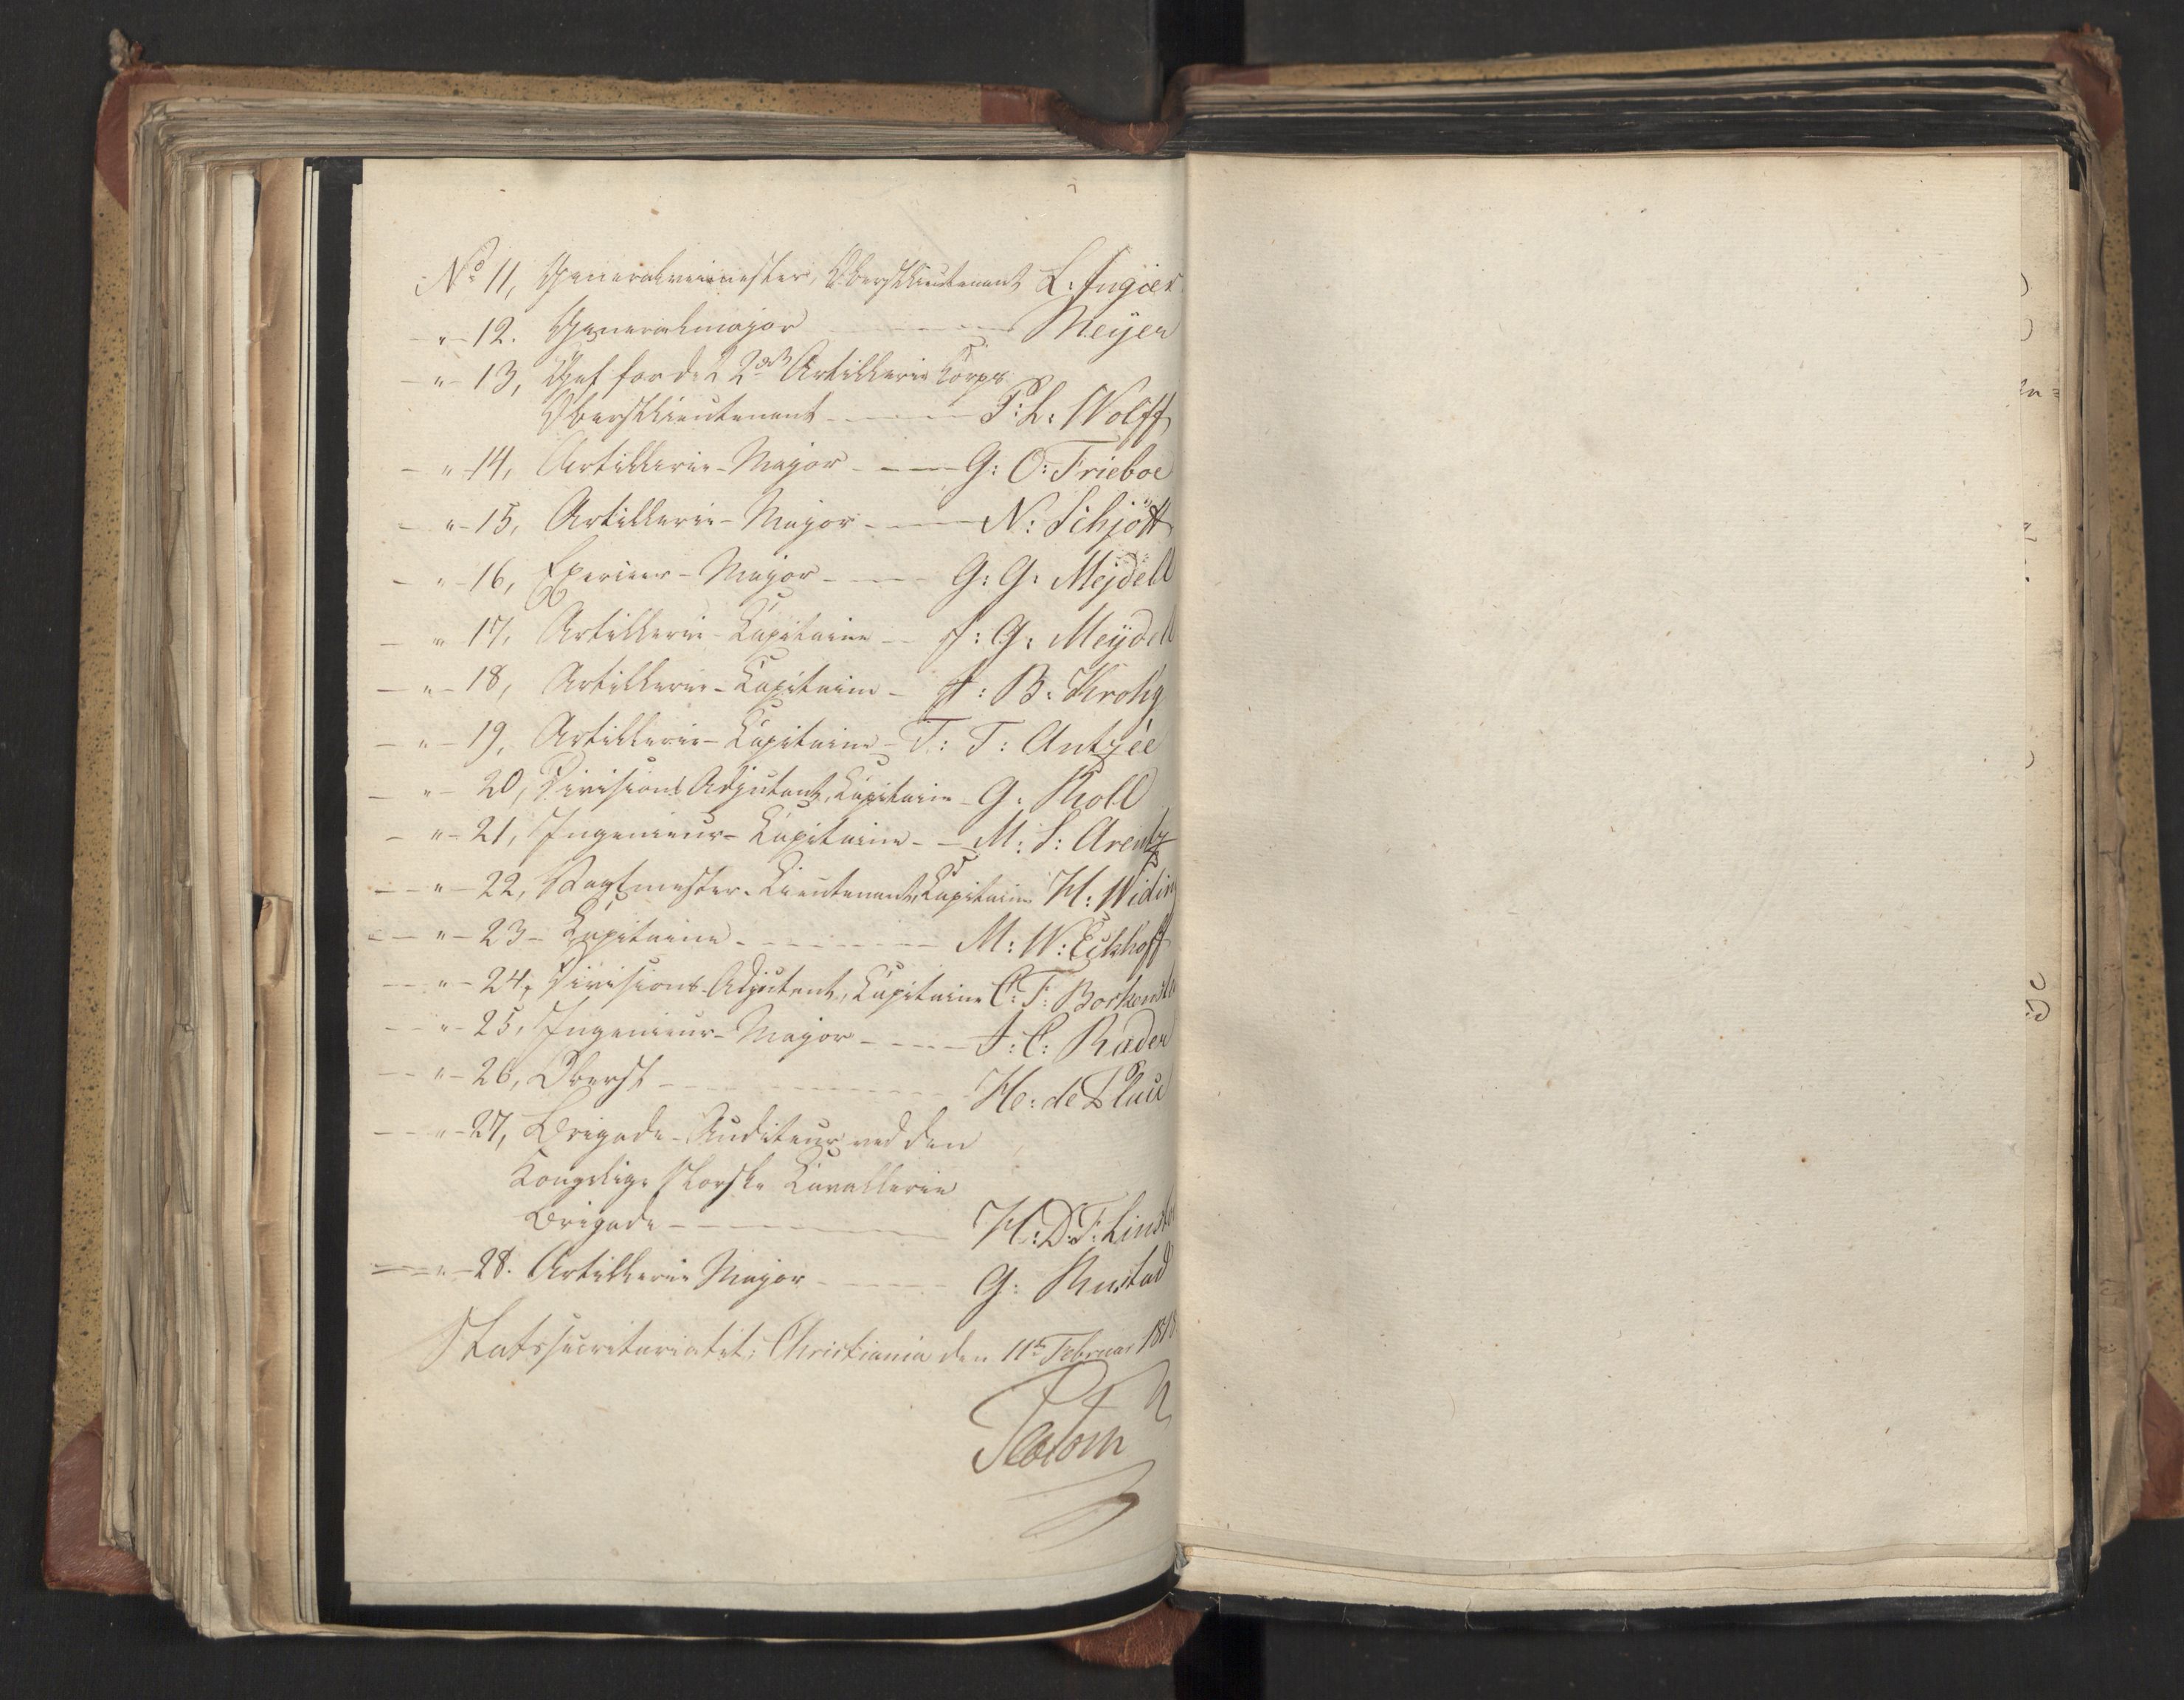 No 11, Generalveimester, Oberstlieutenant L: Ingier
-"- 12. Generalmajor - - - - Meyer
-"- 13, Chef for det 2det Artillerie Korps
Oberstlieutenant - - - - P: L: Wolff
-"- 14, Artillerie-Major - - - G: O: Trieboe
-"- 15, Artillerie-Major - - - N: Schjött
-"- 16, Exerceer-Major - - - G: G: Mejdell
-"- 17, Artillerie-Kapitaine - - J: G: Meydell
-"- 18, Artillerie-Kapitaine - A: B: Krohg
-"- 19, Artillerie-Kapitaine - T: T: Antzée
-"- 20, Divisions Adjutant, Kapitaine - G: Roll
-"- 21, Ingenieur-Kapitaine - - M: S: Arentz
-"- 22, Vagtmester-Lieutenant, Kapitaine H: Widin
-"- 23 - Kapitaine - - - - M: W: Eckhoff
-"- 24, Divisions-Adjutant, Kapitaine C: F: Borkenste
-"- 25, Ingenieur-Major - - - - J: C: Ræder
-"- 26, Oberst - - - - He: de Seue
-"- 27, Brigade-Auditeur ved den
Kongelige Norske Kavallerie
Brigade - - - - H: D: F: Linste
-"- 28. Artillerie Major - - - - G: Rustad
Statssecretariatet, Christiania den 11te Februar 1818